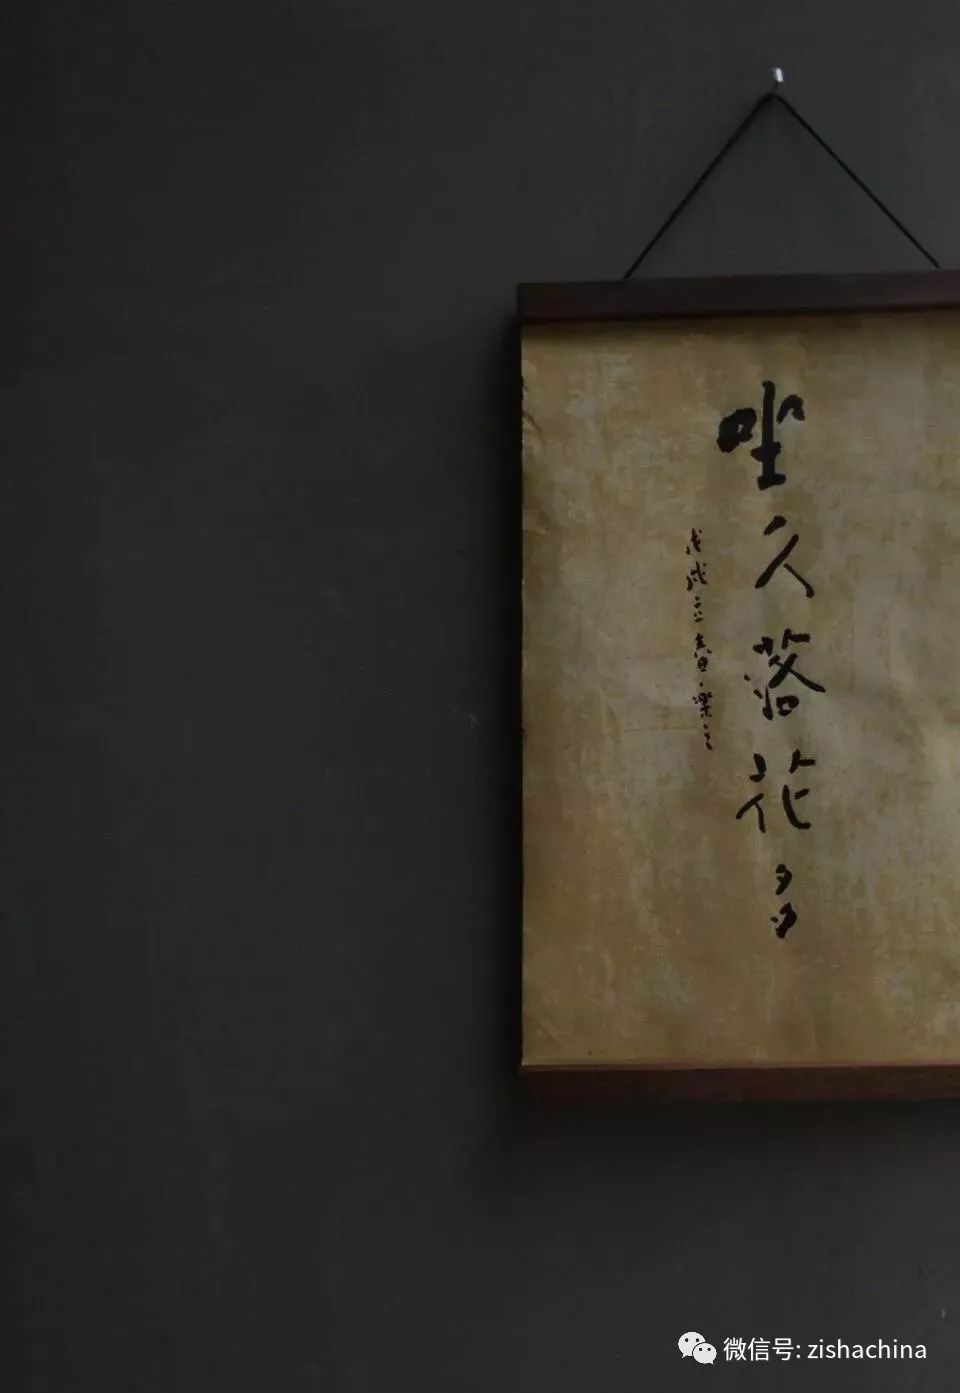 坐久落花多
戊戌立黄樂之
微信号: zishachina